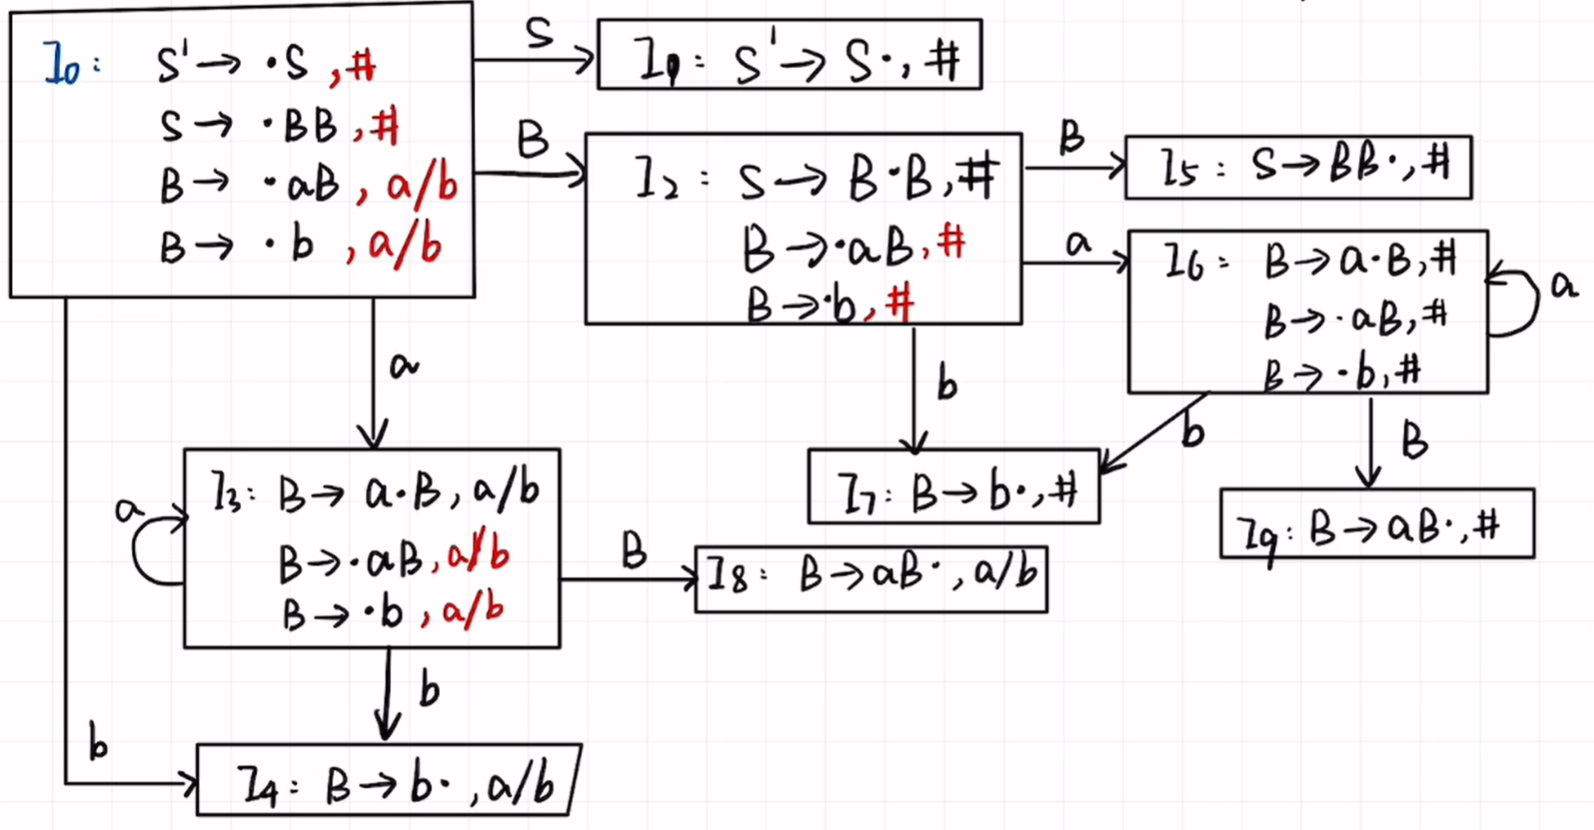 I₀: S' → ·S, #
S → ·BB, #
B → ·aB, a/b
B → ·b, a/b
S
I₁: S' → S·, #
B
I₂: S → B·B, #
B → ·aB, #
B → ·b, #
B
I₅: S → BB·, #
a
I₆: B → a·B, #
B → ·aB, #
B → ·b, #
a
a
b
b
B
I₃: B → a·B, a/b
B → ·aB, a/b
B → ·b, a/b
a
I₇: B → b·, #
I₉: B → aB·, #
B
I₈: B → aB·, a/b
b
b
I₄: B → b·, a/b